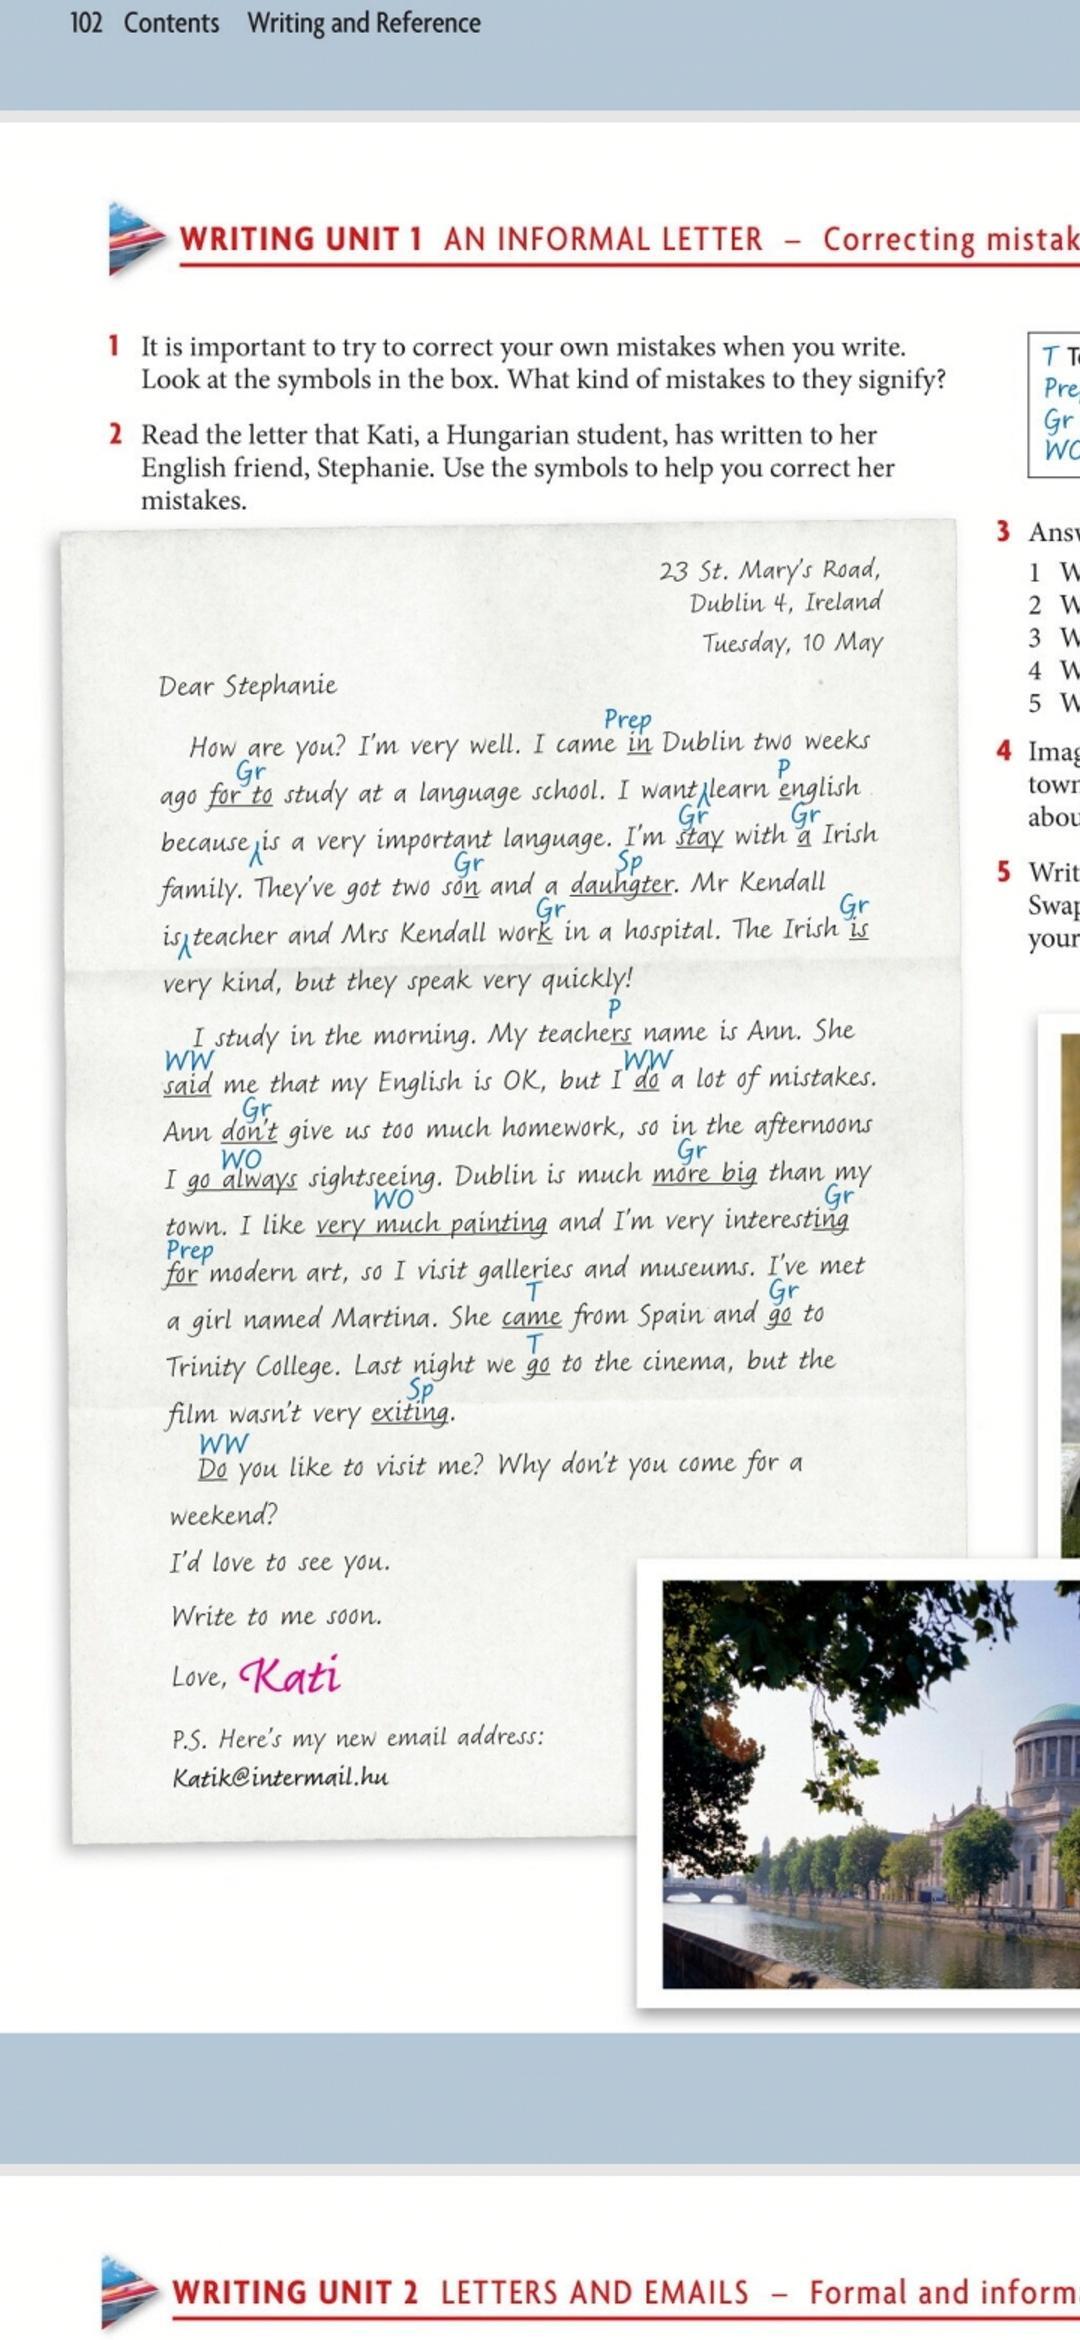 102 Contents Writing and Reference
WRITING UNIT 1 AN INFORMAL LETTER – Correcting
1 It is important to try to correct your own mistakes when you write.
Look at the symbols in the box. What kind of mistakes to they signify?
2 Read the letter that Kati, a Hungarian student, has written to her
English friend, Stephanie. Use the symbols to help you correct her
mistakes.
23 St. Mary's Road,
Dublin 4, Ireland
Tuesday, 10 May
Dear Stephanie
Prep
How are you? I'm very well. I came in Dublin two weeks
Gr P
ago for to study at a language school. I want learn english
Gr Gr
because is a very important language. I'm stay with a Irish
Gr Sp
family. They've got two son and a dauhgter. Mr Kendall
Gr Gr
is teacher and Mrs Kendall work in a hospital. The Irish is
very kind, but they speak very quickly!
P
I study in the morning. My teachers name is Ann. She
WW WW
said me that my English is OK, but I do a lot of mistakes.
Gr
Ann don't give us too much homework, so in the afternoons
WO Gr
I go always sightseeing. Dublin is much more big than my
WO Gr
town. I like very much painting and I'm very interesting
Prep
for modern art, so I visit galleries and museums. I've met
T Gr
a girl named Martina. She came from Spain and go to
T
Trinity College. Last night we go to the cinema, but the
Sp
film wasn't very exiting.
WW
Do you like to visit me? Why don't you come for a
weekend?
I'd love to see you.
Write to me soon.
Love, Kati
P.S. Here's my new email address:
Katik@intermail.hu
T
Gr
3
1
2
3
4
5
4
5
your
WRITING UNIT 2 LETTERS AND EMAILS – Formal and